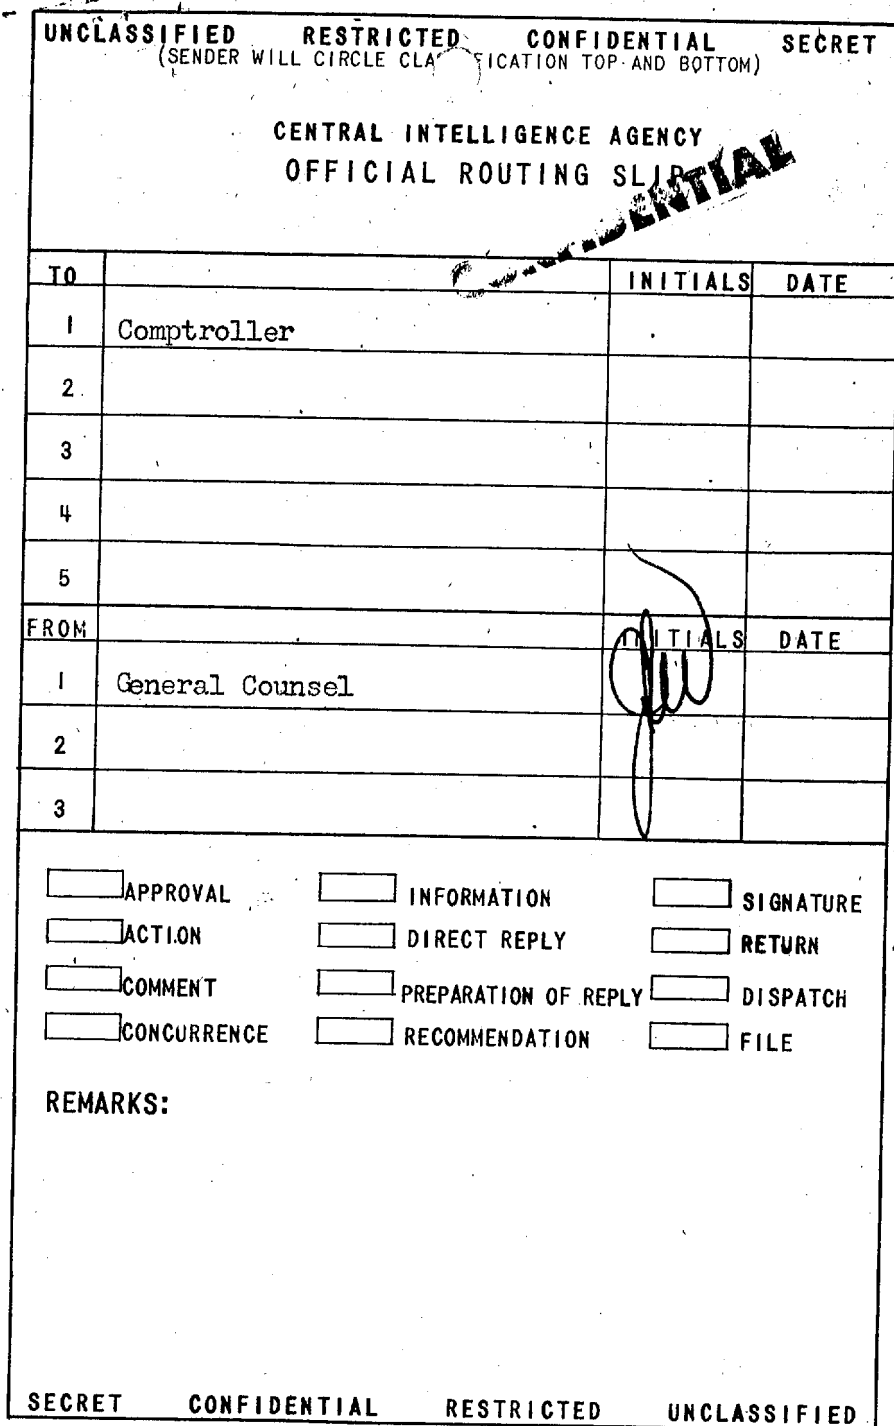 UNCLASSIFIED RESTRICTED CONFIDENTIAL SECRET
(SENDER WILL CIRCLE CLASSIFICATION TOP AND BOTTOM)
CENTRAL INTELLIGENCE AGENCY
OFFICIAL ROUTING SLIP
CONFIDENTIAL
TO INITIALS DATE
1 Comptroller
2
3
4
5
FROM INITIALS DATE
1 General Counsel
2
3
APPROVAL INFORMATION SIGNATURE
ACTION DIRECT REPLY RETURN
COMMENT PREPARATION OF REPLY DISPATCH
CONCURRENCE RECOMMENDATION FILE
REMARKS:
SECRET CONFIDENTIAL RESTRICTED UNCLASSIFIED